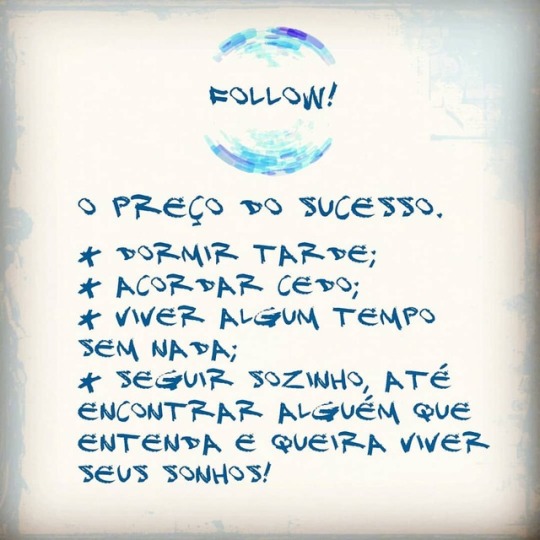 FOLLOW!
O PREÇO DO SUCESSO.
* DORMIR TARDE;
* ACORDAR CEDO;
* VIVER ALGUM TEMPO
SEM NADA;
* SEGUIR SOZINHO, ATÉ
ENCONTRAR ALGUÉM QUE
ENTENDA E QUEIRA VIVER
SEUS SONHOS!